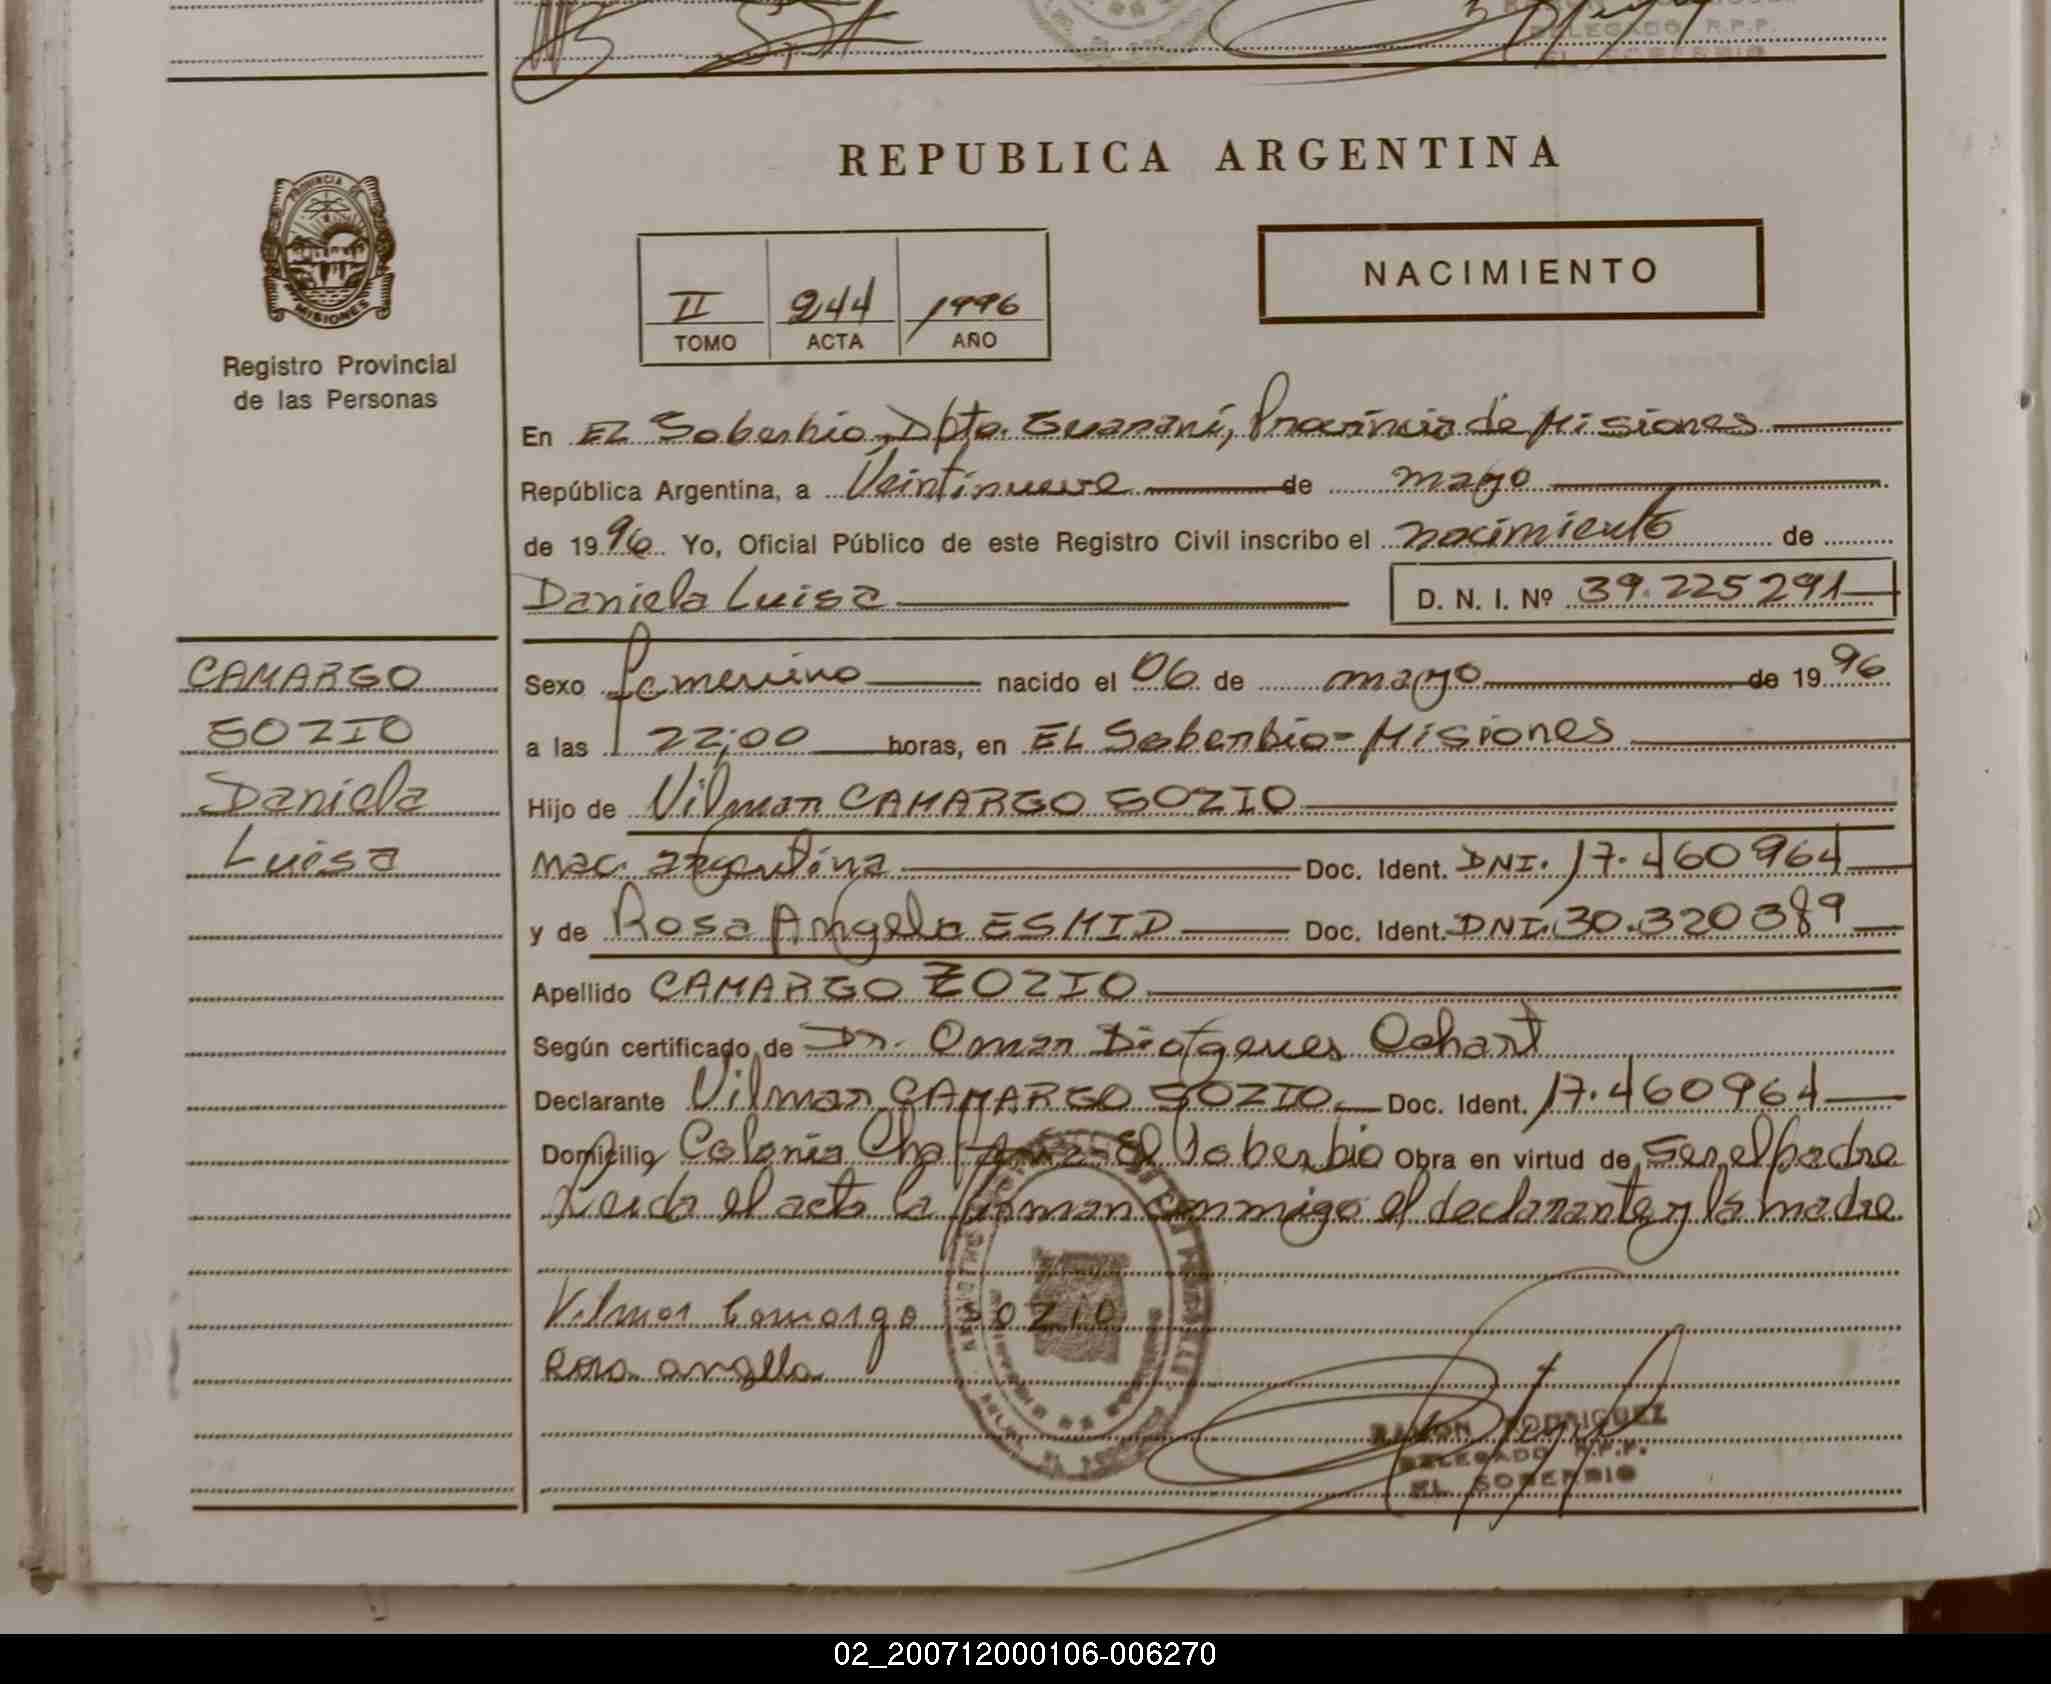 REPUBLICA ARGENTINA
PROVINCIA DE
MISIONES
Registro Provincial
de las Personas
II 244 1996
TOMO ACTA AÑO
NACIMIENTO
En EL Soberbio, Dpto. Guaraní, Provincia de Misiones
República Argentina, a Veintinueve de mayo
de 1996 Yo, Oficial Público de este Registro Civil inscribo el nacimiento de
Daniela Luisa D. N. I. Nº 39.225291
CAMARGO
SOZIO
Daniela
Luisa
Sexo femenino nacido el 06 de mayo de 1996
a las 22,00 horas, en EL Soberbio - Misiones
Hijo de Vilmar CAMARGO SOZIO
nac. argentina Doc. Ident. DNI. 17.460964
y de Rosa Angela ESMID Doc. Ident. DNI. 30.320389
Apellido CAMARGO ZOZIO
Según certificado de Dr. Omar Diógenes Ochart
Declarante Vilmar CAMARGO SOZIO Doc. Ident. 17.460964
Domicilio Colonia El Soberbio Obra en virtud de Ser el padre
Leida el acta la firman conmigo el declarante y la madre
Vilmar Camargo SOZIO
Rosa angella
RAMON RODRIGUEZ
DELEGADO R.P.P.
EL SOBERBIO
02_200712000106-006270